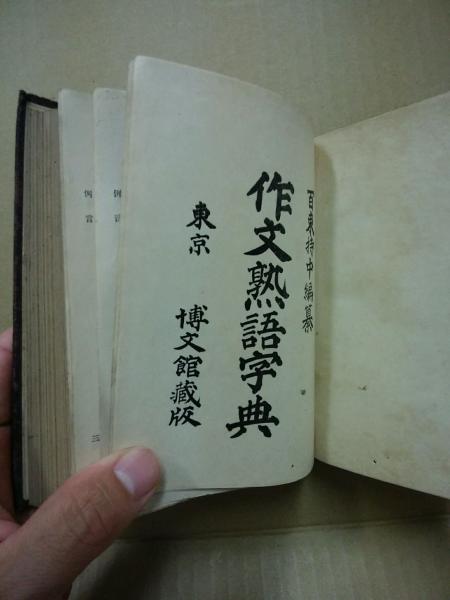 百東持中編纂
作文熟語字典
東京 博文館蔵版
例言
例言
三